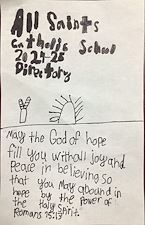 All Saints
Catholic School
2024-25
Directory
May the God of hope
fill you with all joy and
Peace in believing so
that you May abound in
hope by the Power of
the Holy Spirit.
Romans 15:13